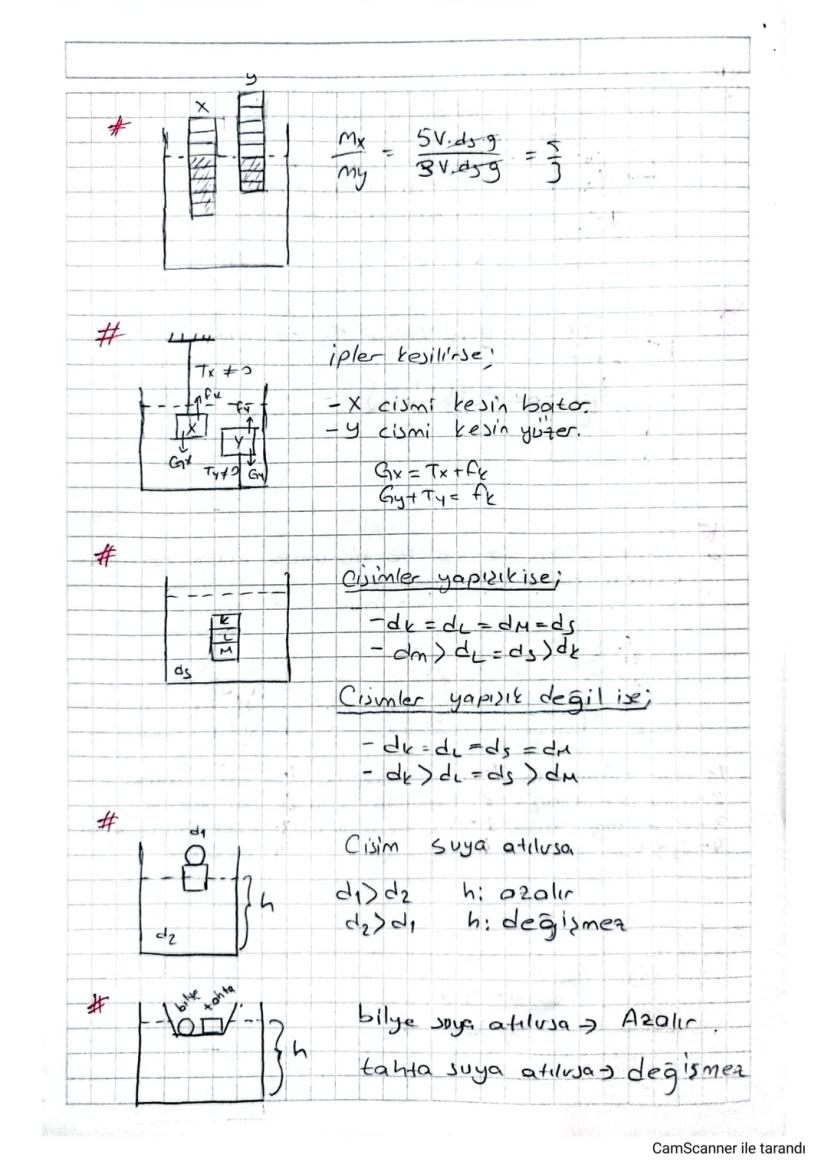 #
x
y
Mx / My = 5V.ds g / 3V.ds g = 5/3
#
Tx ≠ 0
fk
fy
X
Y
Gx
Ty≠0
Gy
ipler kesilirse;
- X cismi kesin batar.
- Y cismi kesin yüzer.
Gx = Tx + fk
Gy + Ty = fk
#
K
L
M
ds
Cisimler yapışık ise;
- dk = dL = dM = ds
- dm > dL = ds > dk
Cisimler yapışık değil ise;
- dk = dL = ds = dM
- dk > dL = ds > dM
#
d1
h
d2
Cisim suya atılırsa
d1 > d2 h: azalır
d2 > d1 h: değişmez
#
bilye
tahta
h
bilye suya atılırsa → Azalır.
tahta suya atılırsa → değişmez
CamScanner ile tarandı